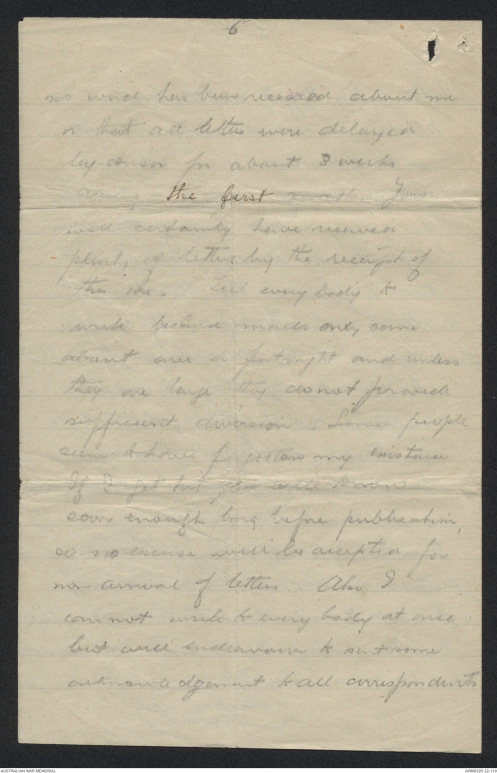 6
no word has been received about me
is that all letters were delayed
by censor for about 3 weeks
during the first month. You
will certainly have received
plenty of letters by the receipt of
this one. Tell everybody to
write because mails only come
about once a fortnight and unless
they are large they do not provide
sufficient diversion. Some people
seem to have forgotten my existence
If I get hit you will know
soon enough long before publication,
so no excuse will be accepted for
non arrival of letters. Also I
cannot write to everybody at once
but will endeavour to send some
acknowledgement to all correspondents
AUSTRALIAN WAR MEMORIAL